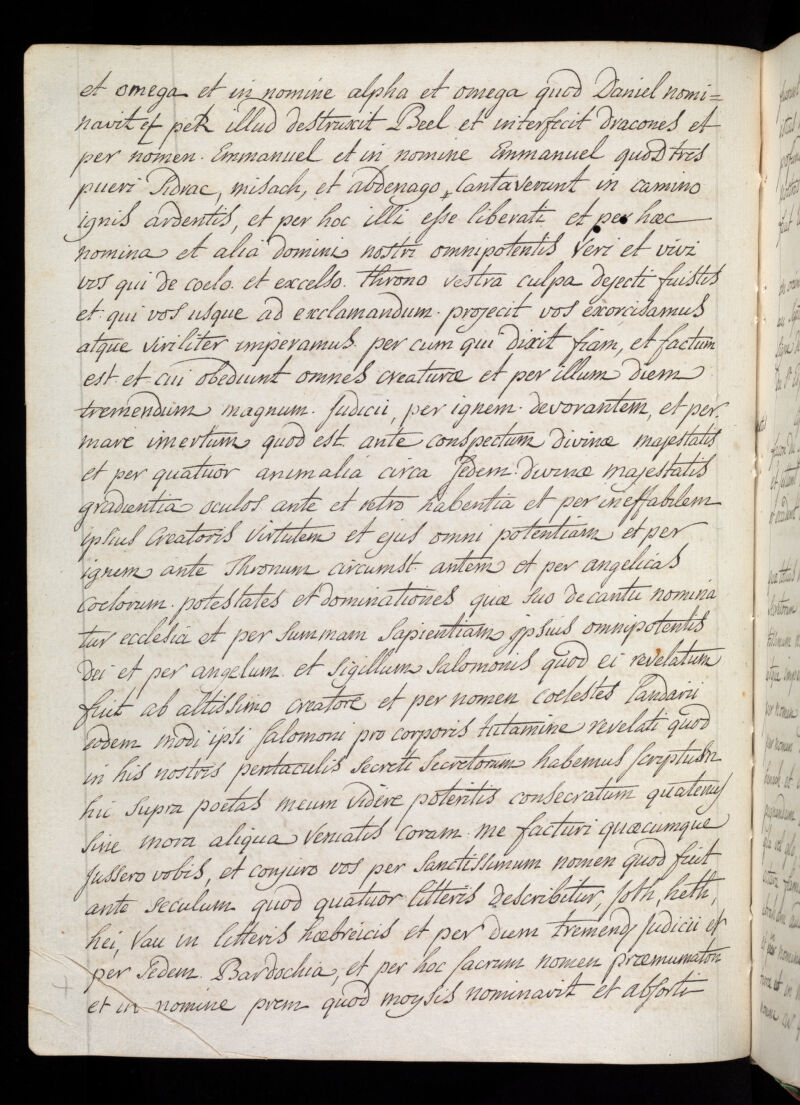 et omega et in nomine alpha et omega quod Daniel nomi=
navit et per illud destruxit Beel et interfecit dracones et
per nomen. Emmanuel et in nomine Emmanuel quod tres
pueri Sidrac, misach, et abdenago, Cantaverunt in camino
ignis ardentis, et per hoc illi esse liberati et per hæc
nomina et alia domini nostri omnipotentis Veri et vivi
vos qui de coelo. et excelso. throno vestra culpa dejecti fuistis
et qui vos usque ad exclamandum. projecit vos exorcisamus
atque viriliter imperamus. per eum qui dixit fiam, et factum
est et cui obediunt omnes creaturæ et per illum diem
tremendum magnum. Judicii, per ignem. devorantem, et per
mare incertum quod est. ante conspectum divinæ majestatis
et per quatuor animalia circa Sedem. divinæ majestatis
gradientia oculos ante et retro habentia et per ineffabilem
ipsius Creatoris virtutem et ejus omni potentiam et per
ignem ante Thronum circumst antem et per angelicas
Coelorum. potestates et dominationes quæ suo de cantu nomina
tur ecclesia et per summam sapientiam ipsius omnipotentis
Dei et per angelum. et Sigillum Salomonis quod ei revelatum
fuit ab altissimo creatore et per nomen coelestes Tandarii
eodem modi ipsi Salomoni pro corporis tutamine revelati quod
in his nostris pentaculis secreti secretorum habemus scriptum
hic supra poetas meum videre poteritis consecratum quatenus
sine mora aliqua Veniatis Coram me facturi quæcumque
Jussero vobis, et conjuro vos per sanctissimum nomen quod fuit
ante seculum quod quatuor litteris describitur, Joth, heth,
hei, Vau in litteris hæbreicis et per diem tremendi Judicii et
per Sedem. Bardochia, et per hoc sacrum nomen præmumaton
et in nomine prem quod moysis nominavit et absorti